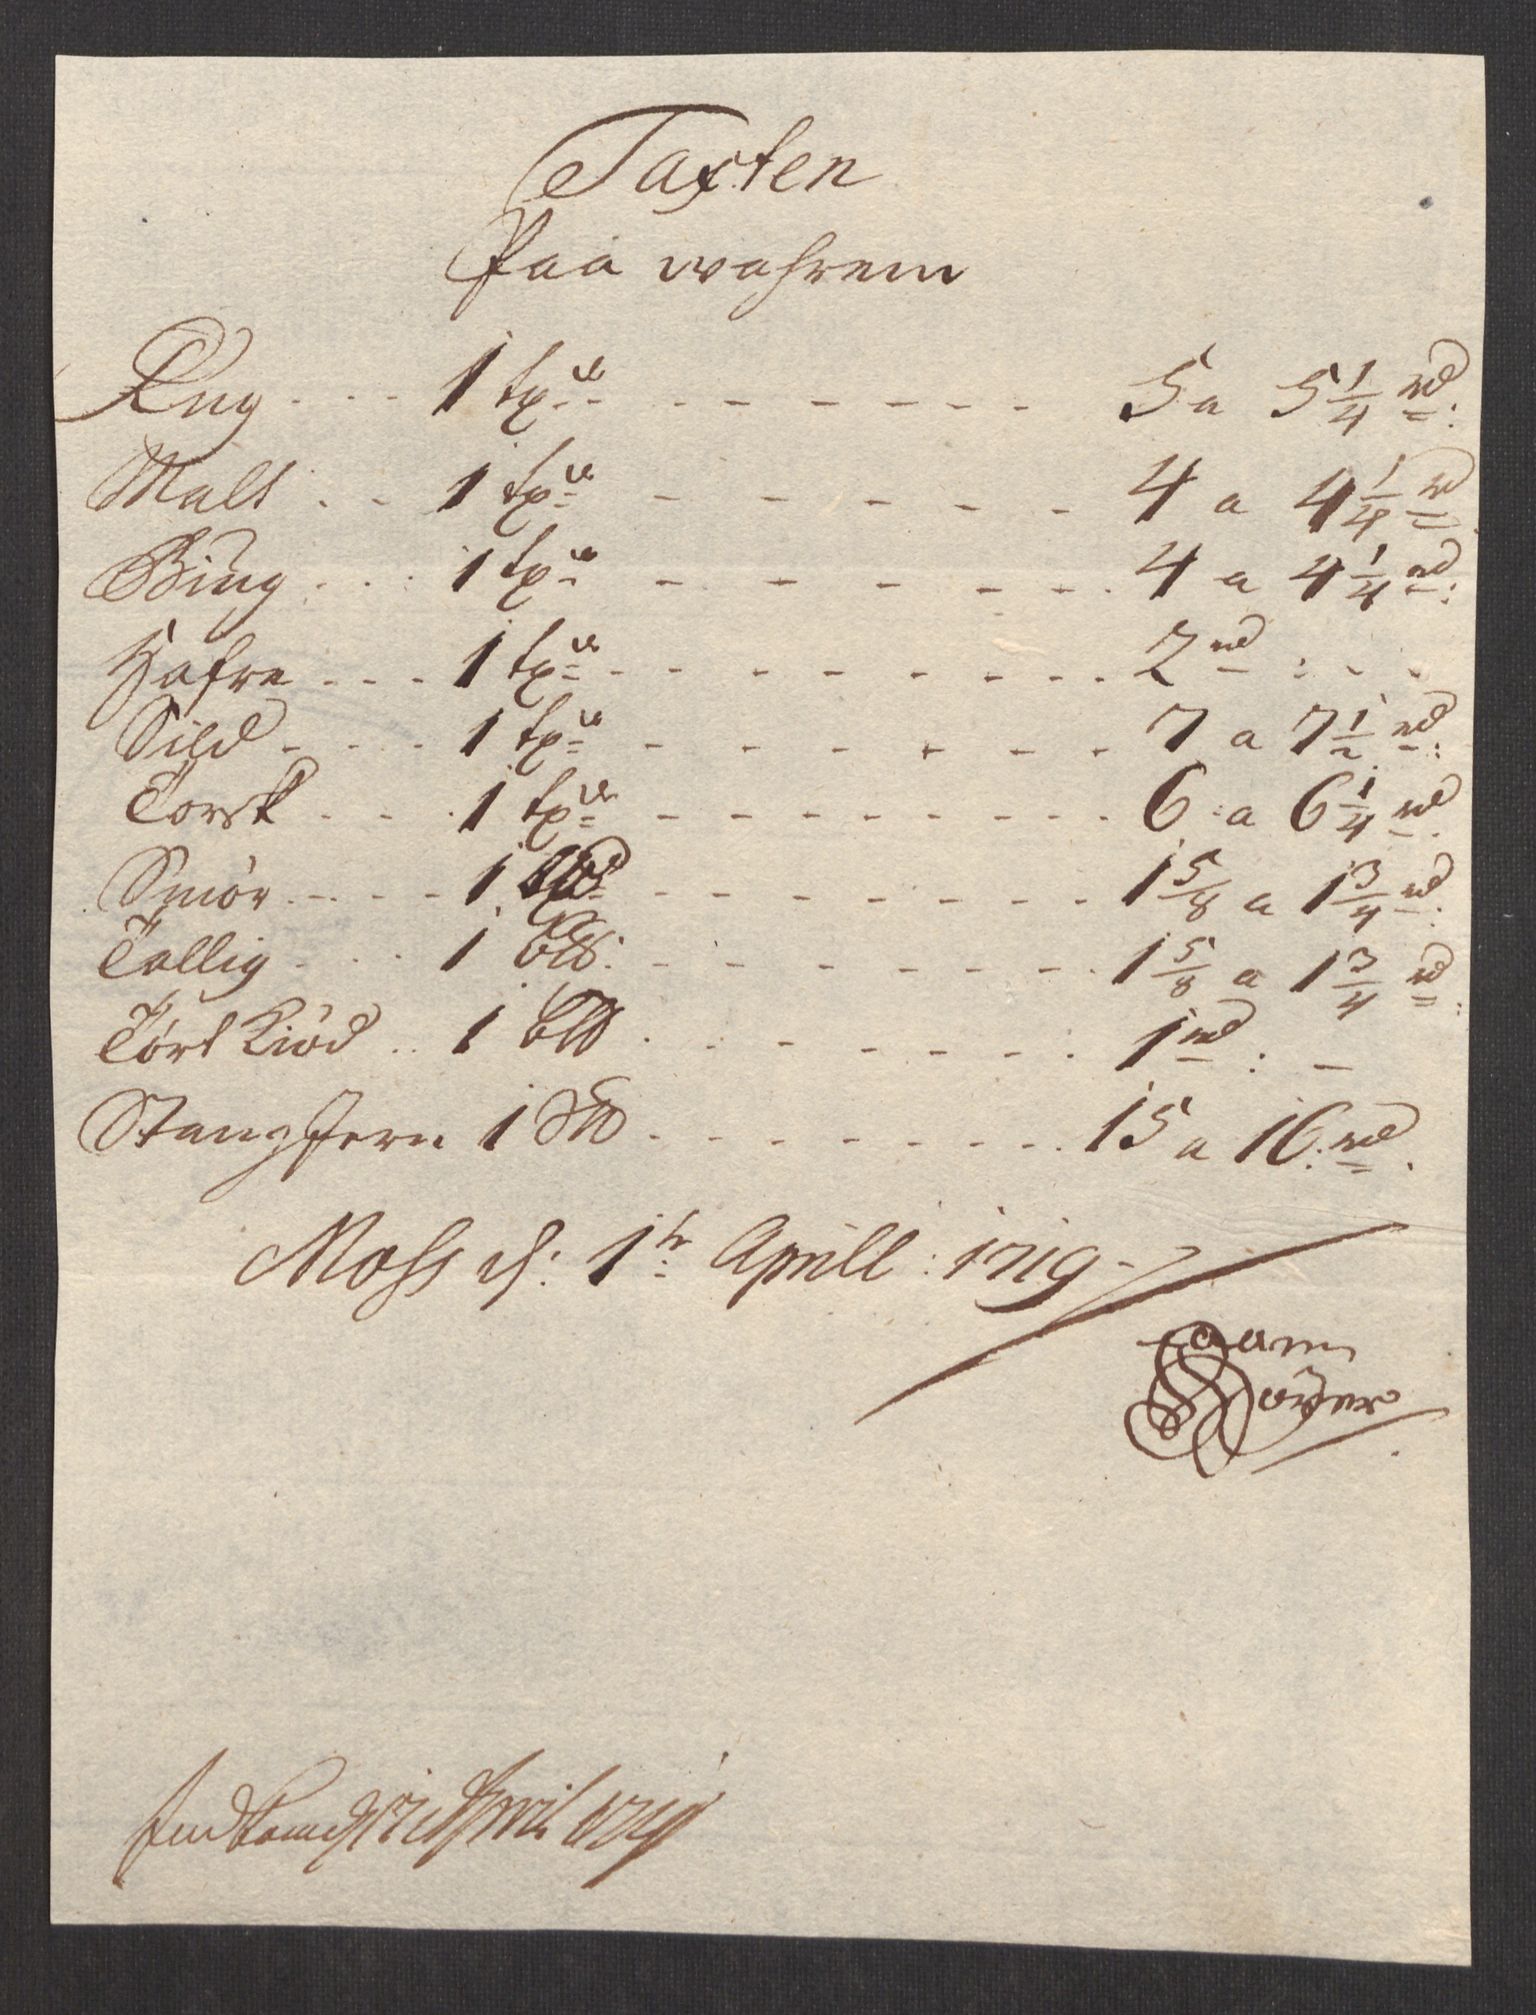 Taxten
Paa wahrenn
Rug . . . 1 tøe - - - - - - - 5 a 5 1/4 rd:
Malt . . 1 tøe - - - - - 4 a 4 1/4 rd
Biug . . . 1 tøe - - - - - 4 a 4 1/4 rd:
Hafre . . . 1 tøe - - - - - - - - 2 rd : - -
Sild - . . . 1 tøe - - - - - - 7 a 7 1/2 rd:
Torsk . . . 1 tøe - - - - - - - - 6 : a 6 1/4 rd
Smör - . . . 1 - - - - - - - - 1 5/8 a 1 3/4 rd:
Tallig . . . 1 - - - - - - - 1 5/8 a 1 3/4 rd:
Tört Kiöd . . 1 . . - - - - - 1 rd : -
StangJern 1 . - - - - - - - 15 a 16: rd.
Moss d: 1te Aprill : 1719 -
Höÿer
April 1719